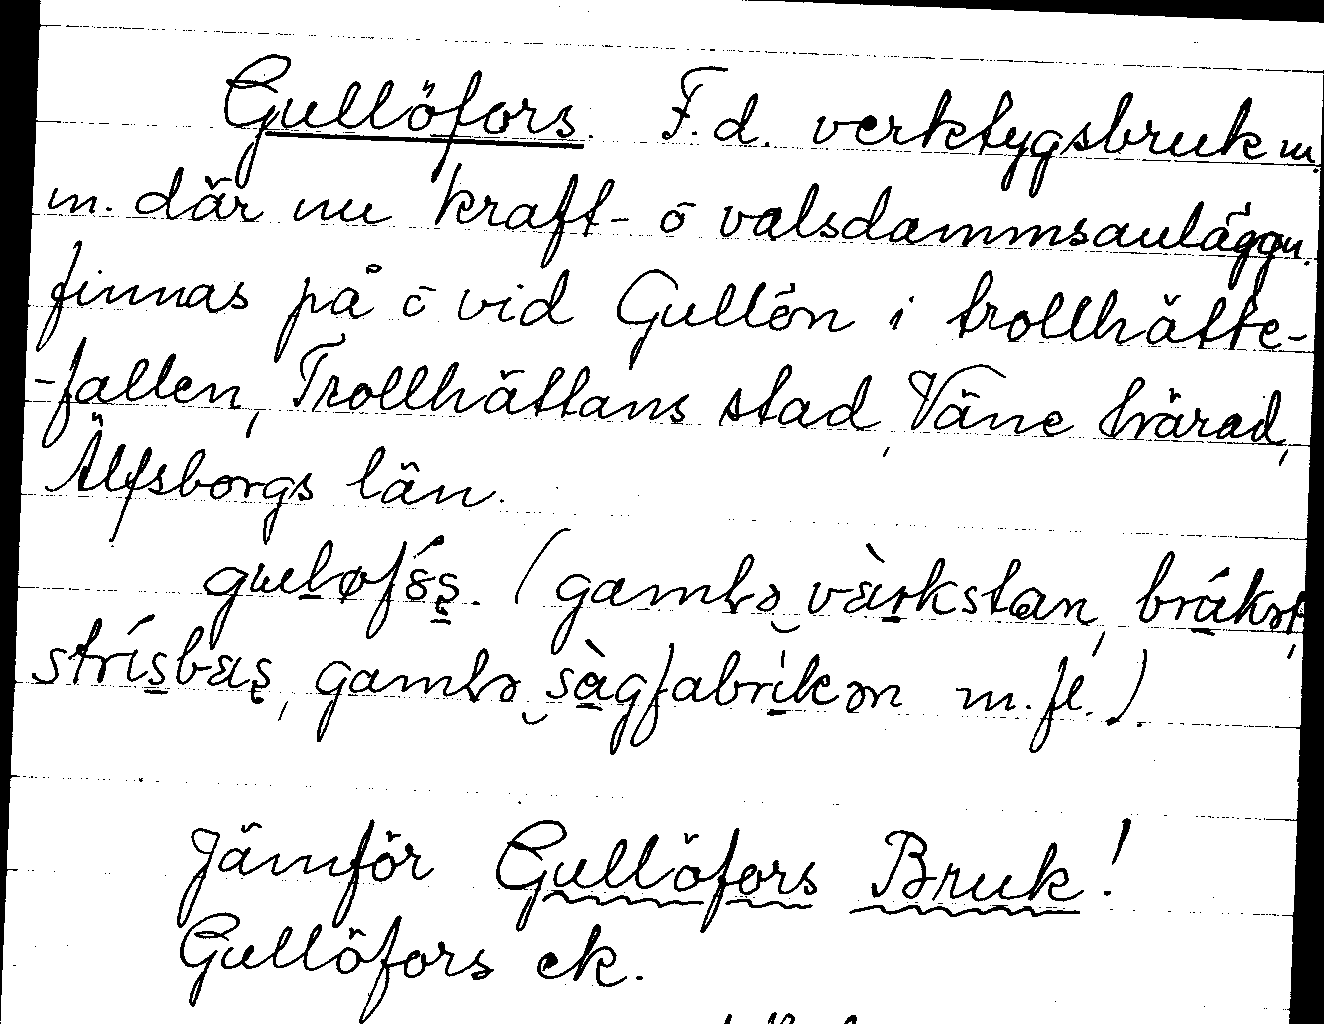 Gullöfors. F.d. verktygsbruk m.
m. där nu kraft- o valsdammsanläggn.
finnas på o vid Gullön i trollhätte-
-fallen, Trollhättans stad, Väne härad,
Älfsborgs län.
(gamlə värkstan, brukət,
gamlə sàgfabrikən m.fl.).
Jämför Gullöfors Bruk!
Gullöfors ek.